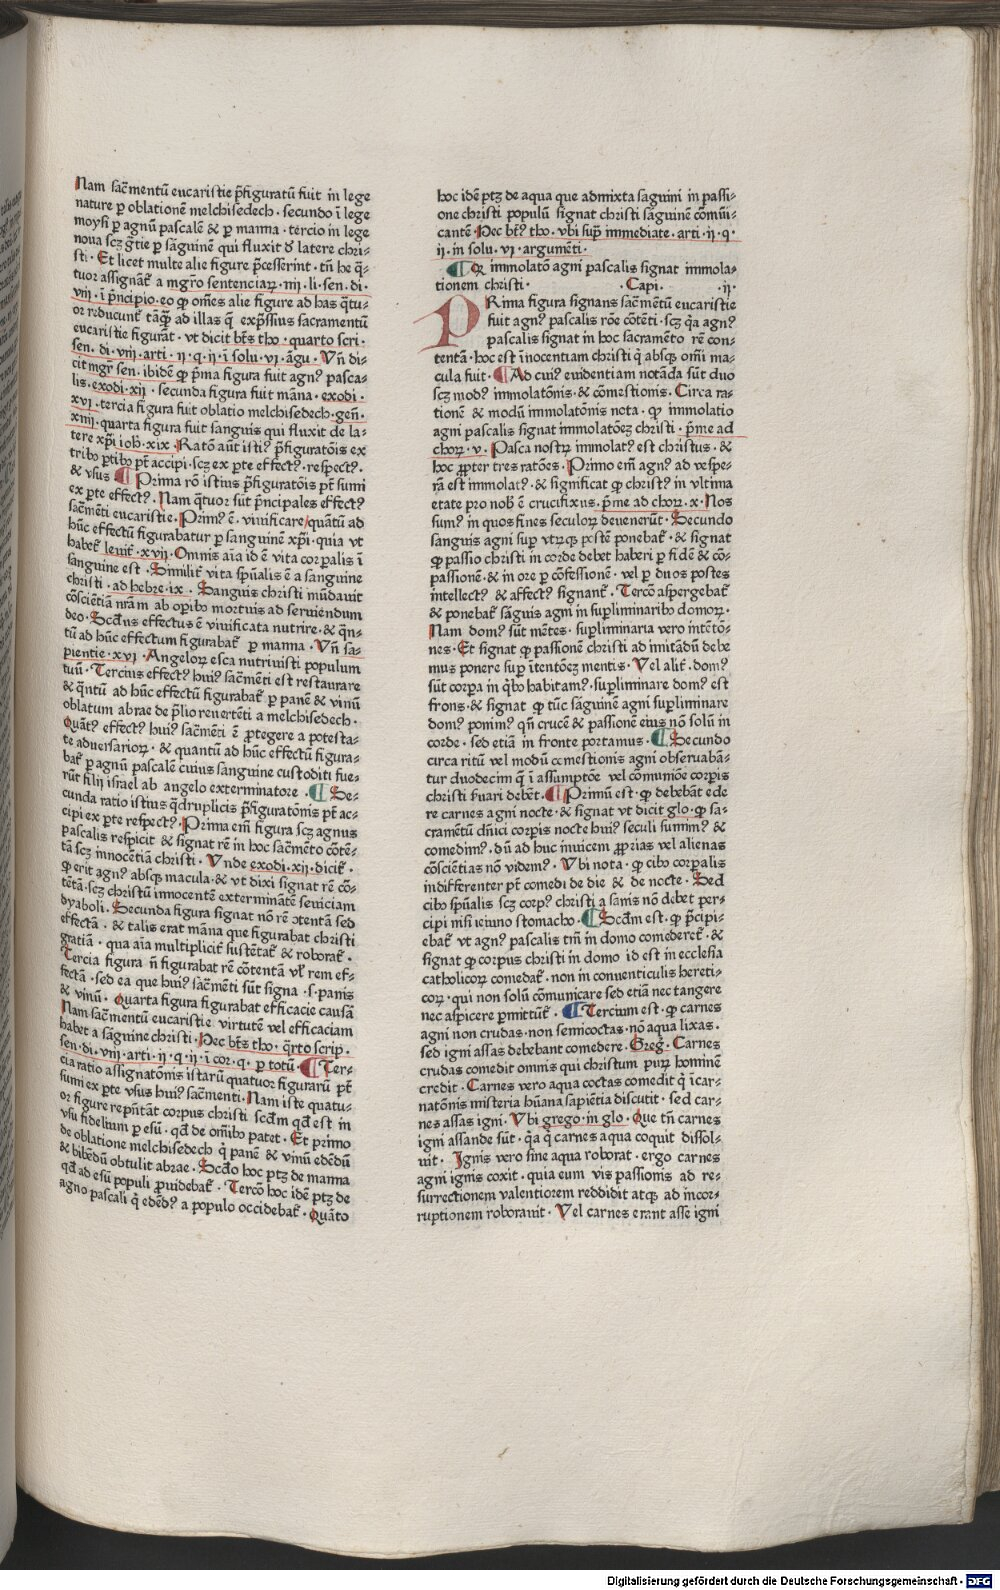 Nam sac̄mentū eucaristie p̄figuratū fuit in lege
nature ꝑ oblationē melchisedech · secundo ī lege
moysi ꝑ agnū pascalē & ꝑ manna · tercio in lege
noua scꝫ gr̄tie ꝑ sāguinem qui fluxit ð latere chri⸗
sti · Et licet multe alie figure p̄cesserint · tn̄ he q̄⸗
tuor assignāt᷑ a mgr̄o sentenciaꝝ · iiii · li · sen · di ·
viii · ī p̄ncipio · eo ꝙ om̄es alie figure ad has q̄tu⸗
or reducunt᷑ tāꝙ̄ ad illas q̄ exp̄ssius sacramentū
eucaristie figurāt · vt dicit bt̄s tho · quarto scri ·
sen · di · viii · arti · ii · q · ii · ī solu · vi · āgu · Vn̄ di⸗
cit mgr̄ sen · ibidē ꝙ p̄ma figura fuit agn⁹ pasca⸗
lis · exodi · xii · secunda figura fuit māna · exodi ·
xvi · tercia figura fuit oblatio melchisedech · gen̄ ·
xiiii · quarta figura fuit sanguis qui fluxit de la⸗
tere xp̄i ioh · xix · Ratō aūt isti⁹ p̄figuratōis ex
tribꝰ ꝑtibꝰ pt̄ accipi · scꝫ ex ꝑte effect⁹ · respect⁹ ·
& vsus · ¶ Prima rō istius p̄figuratōis pt̄ sumi
ex ꝑte effect⁹ · Nam q̄tuor sūt p̄ncipales effect⁹
sac̄menti eucaristie · Prim⁹ ē · viuificare / quātū ad
hūc effectū figurabatur ꝑ sanguinē xp̄i · quia vt
habet᷑ leuit᷑ · xvii · Omnis aīa id ē vita corꝑalis ī
sanguine est · Similit᷑ vita spūalis ē a sanguine
christi · ad hebre · ix · Sanguis christi mūdauit
cōsciētiā nrām ab oꝑibꝰ mortuis ad seruiendum
deo · Scd̄us effectus ē viuificata nutrire · & q̄n⸗
tū ad hūc effectum figurabat᷑ ꝑ manna · Vn̄ sa⸗
pientie · xvi · Angeloꝝ esca nutriuisti populum
tuū · Tercius effect⁹ hui⁹ sac̄mēti est restaurare
& q̄ntū ad hūc effectū figurabat᷑ ꝑ panē & vinū
oblatum abrae de p̄lio reuertēti a melchisedech ·
Quāt⁹ effect⁹ hui⁹ sac̄mēti ē ꝓtegere a potesta⸗
te aduersarioꝝ · & quantū ad hūc effectū figura⸗
bat᷑ ꝑ agnū pascalē cuius sanguine custoditi fue⸗
rūt filii israel ab angelo exterminatore · ¶ Se⸗
cunda ratio istius q̄druplicis p̄figuratōnis pt̄ ac⸗
cipi ex ꝑte respect⁹ · Prima em̄ figura scꝫ agnus
pascalis respicit & signat rē in hoc sac̄mēto cōtē⸗
tā scꝫ innocētiā christi · Vnde exodi · xii · dicit᷑ ·
ꝙ erit agn⁹ absqꝫ macula · & vt dixi signat rē cō⸗
tētā · scꝫ christū innocentē exterminātē seuiciam
dyaboli · Secunda figura signat nō rē ↄtentā sed
effectā · & talis erat māna que figurabat christi
gratiā · qua aīa multiplicit᷑ sustētat᷑ & roborat᷑ ·
Tercia figura n̄ figurabat rē cōtentā vl᷑ rem ef⸗
fectā · sed ea que hui⁹ sac̄mēti sūt signa · s · panis
& vinū · Quarta figura figurabat efficacie causā
Nam sac̄mentū eucaristie virtutē vel efficaciam
habet a sāgnine christi · Hec bt̄s tho · q̄rto scrip ·
sen · di · viii · arti · ii · q · ii · ī cor · q · ꝑ totū · ¶ Ter⸗
cia ratio assignatōnis istarū quatuor figurarū pt̄
sumi ex ꝑte vsus hui⁹ sac̄menti · Nam iste quatu⸗
or figure rep̄ntāt corpus christi scd̄m qd̄ est in
vsu fidelium ꝑ esū · qd̄ de om̄ibꝰ patet · Et primo
de oblatione melchisedech q̇ panē & vinū edēdū
& bibēdū obtulit abrae · Scd̄o hoc ptꝫ de manna
qd̄ ad esū populi ꝓuidebat᷑ · Tercō hoc idē ptꝫ de
agno pascali q̇ edēd⁹ a populo occidebat᷑ · Quāto
hoc idē ptꝫ de aqua que admixta sāguini in passi⸗
one christi populū signat christi sāguinē cōmūi⸗
cantē · Hec bt̄⁹ tho · vbi sup̄ immediate · arti · ii · q ·
ii · in solu · vi · argumēti ·
¶ Qꝛ immolatō agni pascalis signat immola⸗
tionem christi · Capi · ii ·
PRima figura signans sac̄mētū eucaristie
fuit agn⁹ pascalis rōe cōtēti · scꝫ q̇a agn⁹
pascalis signat in hoc sacramēto rē con⸗
tentā · hoc est īnocentiam christi q̇ absqꝫ om̄i ma⸗
cula fuit · ¶ Ad cui⁹ euidentiam notāda sūt duo
scꝫ mod⁹ immolatōnis · & cōmestionis · Circa ra⸗
tionē & modū immolatōnis nota · ꝙ immolatio
agni pascalis signat immolatōeꝫ christi · p̄me ad
choꝝ · v · Pasca nostrꝝ immolat⁹ est christus · &
hoc ꝓpter tres ratōes · Primo em̄ agn⁹ ad vespe⸗
rā est immolat⁹ · & significat ꝙ christ⁹ in vltima
etate pro nob̄ ē crucifixus · p̄me ad choꝝ · x · Nos
sum⁹ in quos fines seculoꝝ deuenerūt · Secundo
sanguis agni suꝑ vtrāqꝫ postē ponebat᷑ · & signat
ꝙ passio christi in corde debet haberi ꝑ fidē & cō⸗
passionē · & in ore ꝑ cōfessionē · vel ꝑ duos postes
intellect⁹ & affect⁹ signant᷑ · Tercō aspergebat᷑
& ponebat᷑ sāguis agni in suꝑliminaribꝰ domoꝝ ·
Nam dom⁹ sūt mētes · suꝑliminaria vero intētō⸗
nes · Et signat ꝙ passionē christi ad imitādū debe
mus ponere suꝑ ītentōeꝫ mentis · Vel alit᷑ · dom⁹
sūt corpa in q̇bꝰ habitam⁹ · suꝑliminare dom⁹ est
frons · & signat ꝙ tūc sāguinē agni suꝑliminare
dom⁹ ponim⁹ qn̄ crucē & passionē eius nō solū in
corde · sed etiā in fronte portamus · ¶ Secundo
circa ritū vel modū comestionis agni obseruabā⸗
tur duodecim q̄ ī assumptōe vel cōmuniōe corꝑis
christi ẜuari debēt · ¶ Primū est · ꝙ debebāt ede
re carnes agni nocte · & signat vt dicit glo · ꝙ sa⸗
cramētū dn̄ici corꝑis nocte hui⁹ seculi sumim⁹ &
comedim⁹ · dū ad huc inuicem ꝓprias vel alienas
cōsciētias nō videm⁹ · Vbi nota · ꝙ cibꝰ corꝑalis
indifferenter pt̄ comedi de die & de nocte · Sed
cibꝰ spūalis scꝫ corp⁹ christi a sanis nō debet per⸗
cipi nisi ieiuno stomacho · ¶ Scd̄m est · ꝙ p̄cipi⸗
ebat᷑ vt agn⁹ pascalis tm̄ in domo comederet᷑ · &
signat ꝙ corpus christi in domo id est in ecclesia
catholicoꝝ comedat᷑ · non in conuenticulis hereti⸗
coꝝ · qui non solū cōmunicare sed etiā nec tangere
nec aspicere ꝑmittūt᷑ · ¶ Tercium est · ꝙ carnes
agni non crudas · non semicoctas · nō aqua lixas ·
sed igni assas debebant comedere · Greg̓ · Carnes
crudas comedit omnis qui christum puꝝ hominē
credit · Carnes vero aqua coctas comedit q̇ īcar⸗
natōnis misteria hūana sapiētia discutit · sed car⸗
nes assas igni · Vbi grego · in glo · Que tn̄ carnes
igni assande sūt · q̇a q̇ carnes aqua coquit dissol⸗
uit · Ignis vero sine aqua roborat · ergo carnes
agni ignis coxit · quia eum vis passionis ad re⸗
surrectionem valentiorem reddidit atqꝫ ad incor⸗
ruptionem roborauit · Vel carnes erant asse igni
Digitalisierung gefördert durch die Deutsche Forschungsgemeinschaft · DFG